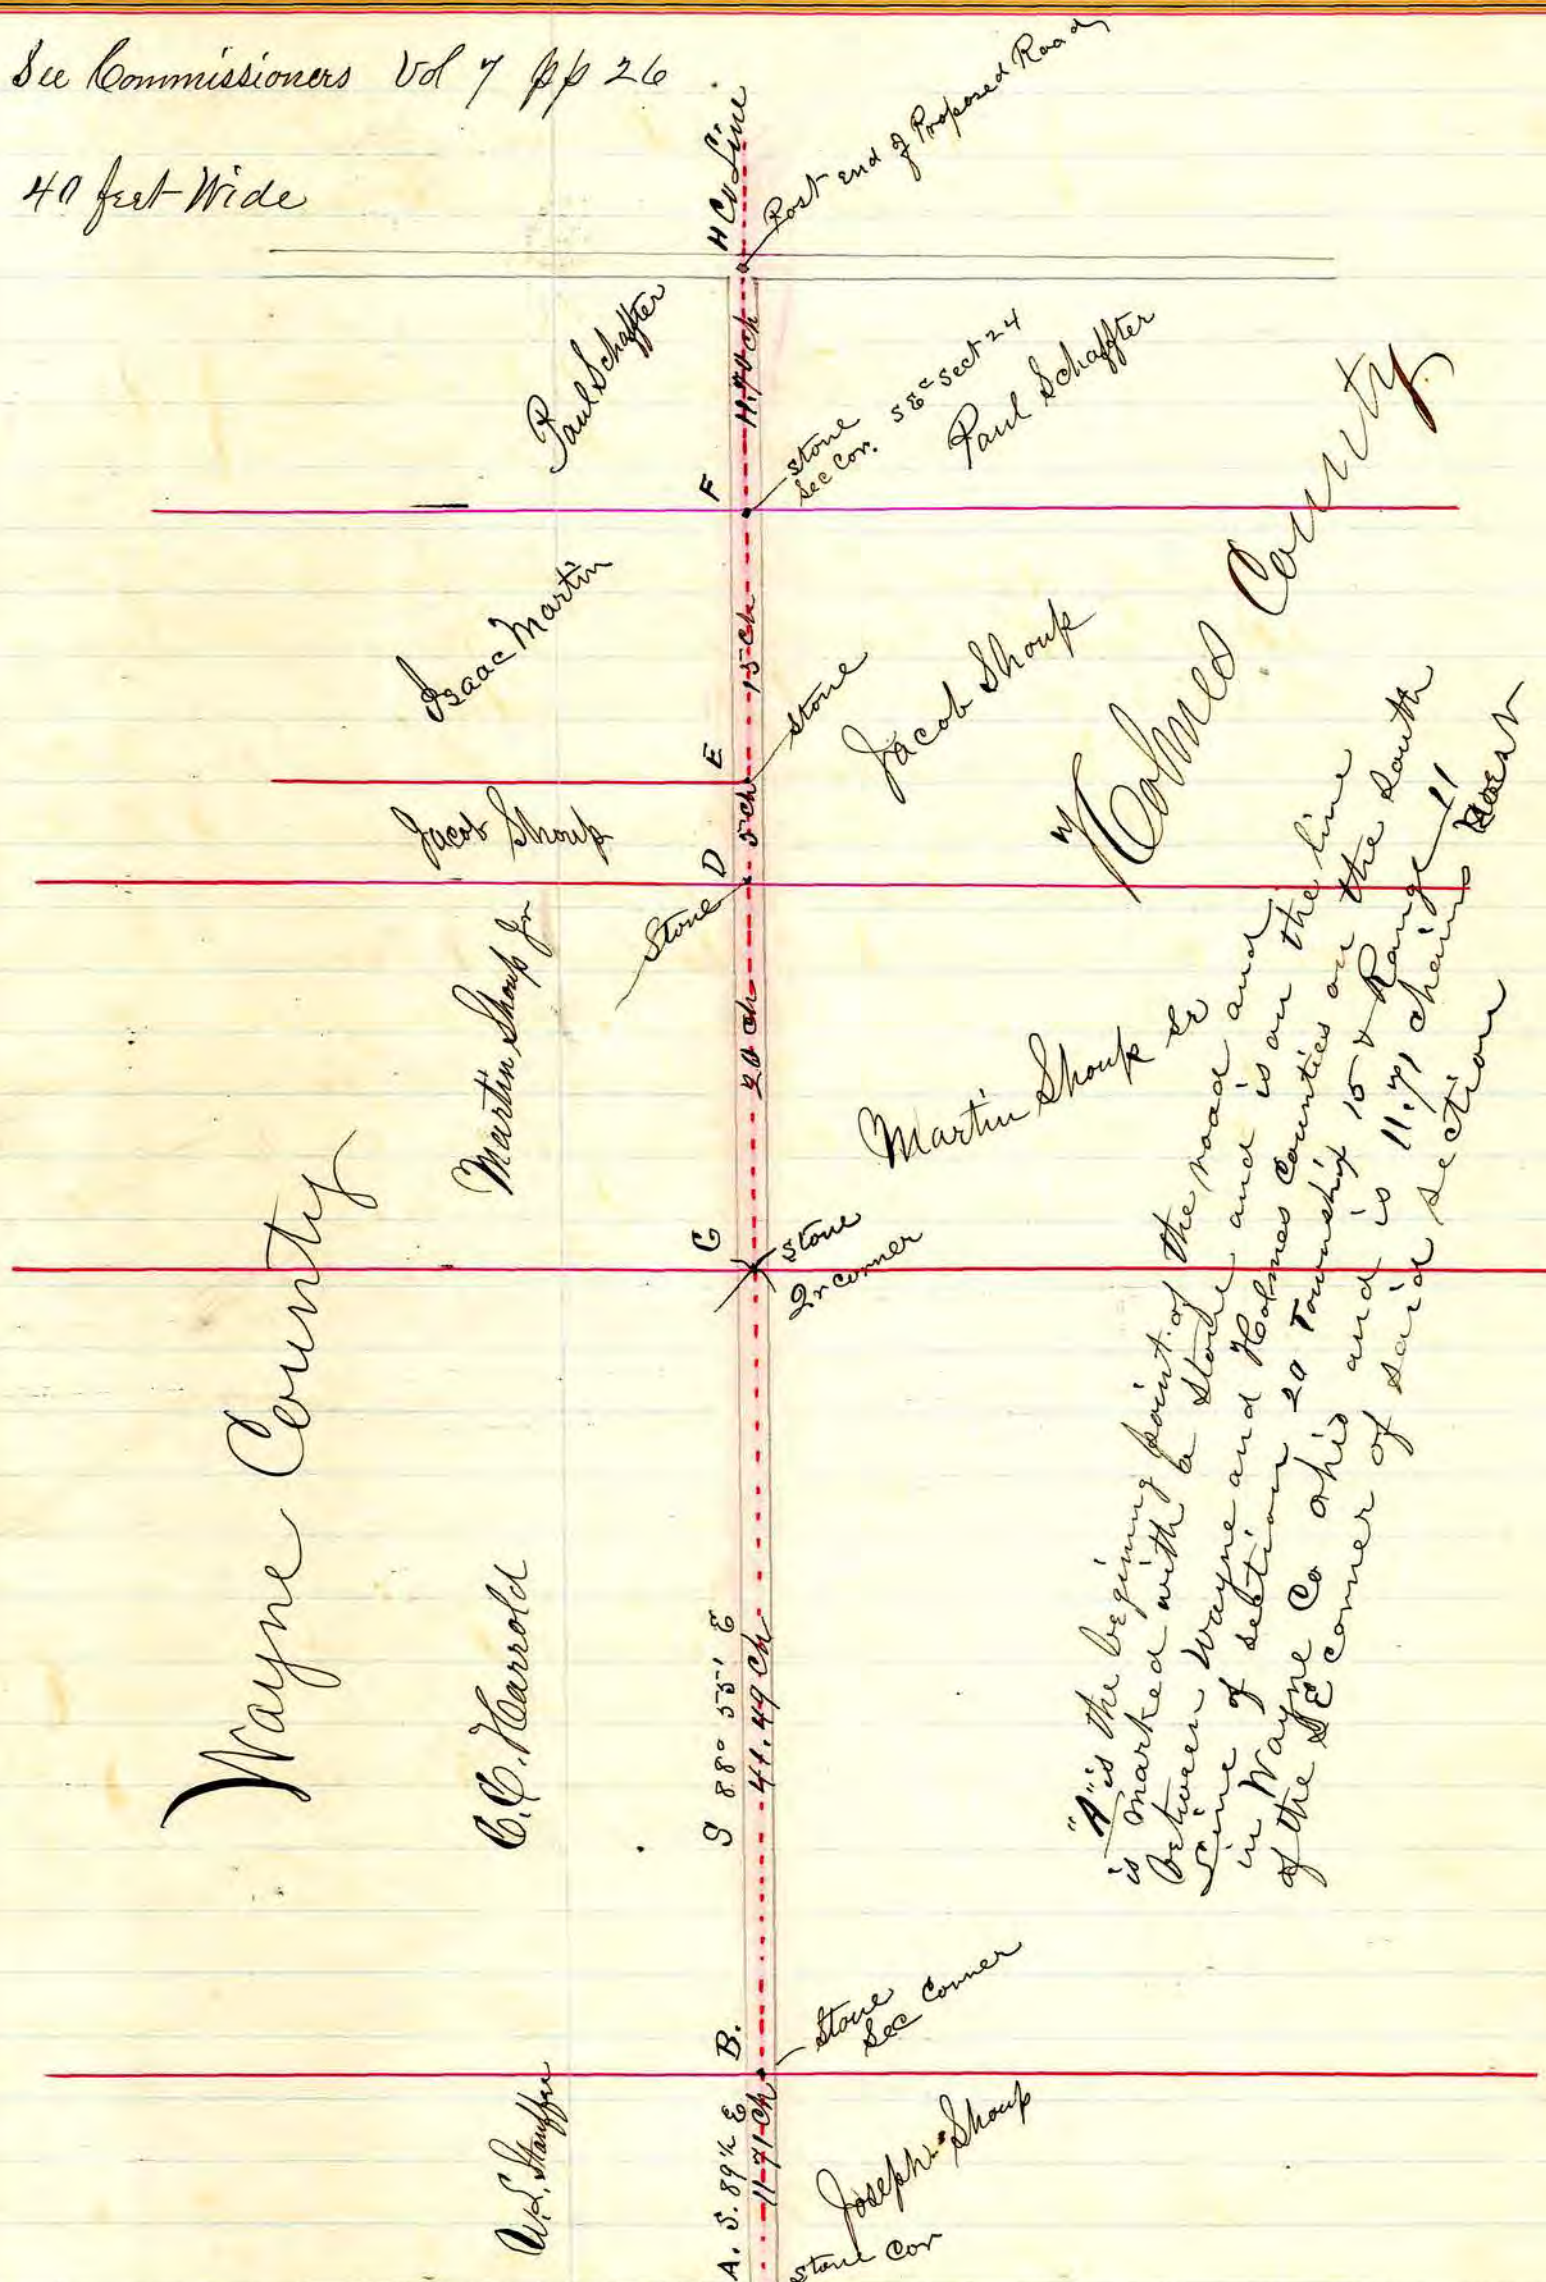 See Commissioners Vol 7 pp 26
40 feet Wide
H Co Line
Post end of Proposed Road
Paul Schaffter
11.70 ch
stone
Sec Cor. S E c Sect 24
Paul Schaffter
F
Isaac Martin
15 ch
Jacob Shoup
Holmes County
E
stone
Jacob Shoup
5 ch
D
Stone
Martin Shoup Jr
20 ch
Martin Shoup Sr
C
stone
Qr corner
Wayne County
C.C. Harrold
S 88° 55' E
41.49 Ch
"A" is the begining point of the road and
is marked with a stone and is on the line
between Wayne and Holmes Counties on the South
Line of section 20 Township 15 & Range 11
in Wayne Co Ohio and is 11.71 chains West
of the SE corner of said section
B.
Stone
Sec Corner
W.L. Stauffer
A. S. 89½ E
11.71 Ch
Joseph Shoup
stone Cor